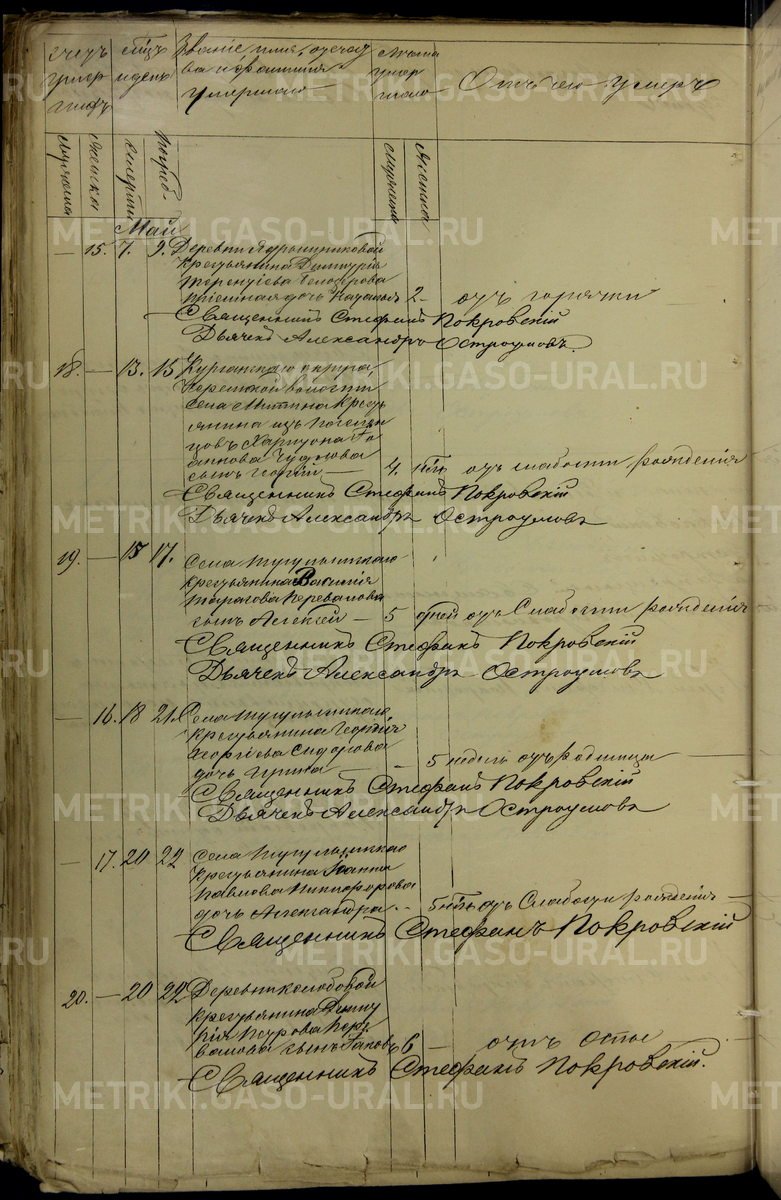 Счетъ умер шихъ
Мѣсяцъ и день
Званіе, имя, отчест
ва и фамилія
умершаго
Лѣта умер шаго
Отъ чего умеръ
Мужеска
Женска
Смерти
Погреб.
Мужеска
Женска
Май
— 15. 7. 9. Деревни
крестьянина Димитрія
Терентіева
дочь 2 - отъ горячки
Священникъ Стефанъ Покровскій
Дьячекъ Александръ Остроумовъ.
18. — 13. 15 Курганскаго округа,
волости
села Митина кресть
янина изъ поселен
цовъ Харитона Іо
аннова
сынъ Георгій — 4. отъ слабости рожденія
Священникъ Стефанъ Покровскій
Дьячекъ Александръ Остроумовъ
19. — 15 17. Села Тугулымскаго
крестьянина Василія
Тарасова Перевалова
сынъ Алексѣй — 5 дней отъ Слабости рожденія
Священникъ Стефанъ Покровскій
Дьячекъ Александръ Остроумовъ
— 16. 18 21. Села Тугулымскаго
крестьянина Георгія
Георгіева Сидорова
дочь Ирина — 5 недель отъ родимца
Священникъ Стефанъ Покровскій
Дьячекъ Александръ Остроумовъ
— 17. 20 22 Села Тугулымскаго
крестьянина Іоанна
Павлова Никифорова
дочь Александра - - 5 отъ Слабости рожденія
Священникъ Стефанъ Покровскій
20. — 20 22 Деревни Колобовой
крестьянина
Пер
валова сынъ Іаковъ 6 — отъ Оспы
Священникъ Стефанъ Покровскій.
METRIKI.GASO-URAL.RU